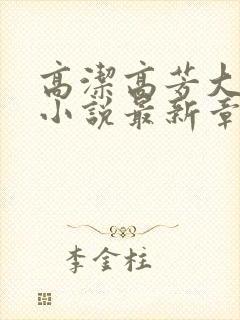 高潔高芳大
小說最新章
李金柱